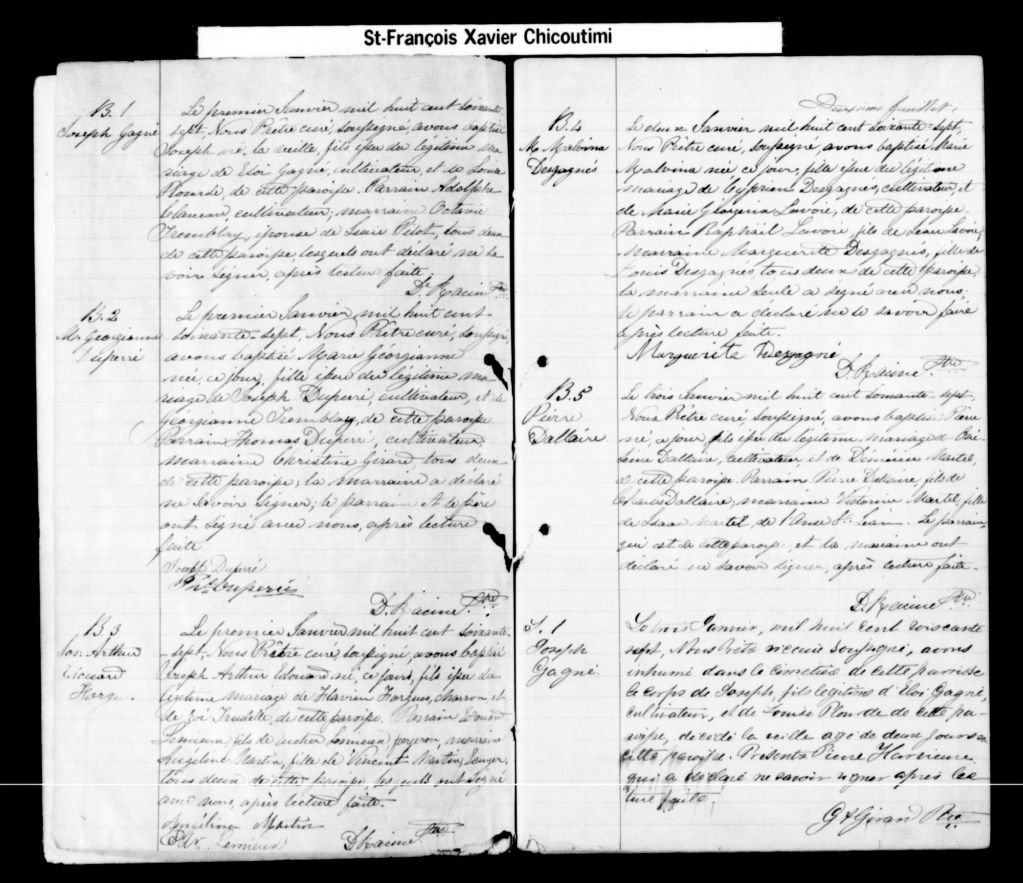 St-François Xavier Chicoutimi
B. 1
Joseph Gagné
Le premier Janvier mil huit cent soixante-
sept, Nous Prêtre curé, soussigné, avons baptisé
Joseph né, la veille, fils issu du légitime ma
riage de Eloi Gagné, cultivateur, et de Louise
Plourde, de cette paroisse. Parrain Adolphe
Claveau, cultivateur; marraine Octavie
Tremblay, épouse de Isaïe Pilot, tous deux
de cette paroisse lesquels ont déclaré ne sa
voir signer, après lecture faite.
D. Racine Ptre
B. 2
M. Georgianne
Duperré
Le premier Janvier mil huit cent
soixante-sept, Nous Prêtre curé, soussigné,
avons baptisé Marie Géorgianne
née, ce jour, fille issue du légitime ma
riage de Joseph Duperré, cultivateur, et de
Géorgianne Tremblay, de cette paroisse
Parrain Thomas Duperré, cultivateur;
marraine Christine Girard, tous deux
de cette paroisse; la marraine a déclaré
ne savoir signer; le parrain et le père
ont signé avec nous, après lecture
faite
Joseph Duperré
Ths Duperré
D. Racine Ptre
B. 3
Jos. Arthur
Edouard
Forgu
Le premier Janvier mil huit cent soixante
-sept, Nous Prêtre curé, soussigné, avons baptisé
Joseph Arthur Edouard né, ce jour, fils issu du
légitime mariage de Flavien Forgues, charron et
de Zoé Trudelle de cette paroisse. Parrain Edouard
Lemieux fils de Lemieux forgeron, marraine
Angéline Martin, fille de Vincent Martin,
tous deux de cette paroisse, lesquels ont signé
avec nous, après lecture faite.
Angélina Martin
Edw. Lemieux
D. Racine Ptre
Deuxième feuillet.
B. 4
M. Malvina
Desgagnés
Le deux Janvier mil huit cent soixante-sept,
Nous Prêtre curé, soussigné, avons baptisé Marie
Malvina née ce jour, fille issue du légitime
mariage de Cyprien Desgagnés, cultivateur, et
de Marie Georgina Lavoie, de cette paroisse.
Parrain Raphaël Lavoie, fils de Lavoie;
marraine Marguerite Desgagnés, fille de
Louis Desgagnés, tous deux de cette paroisse,
la marraine seule a signé avec nous.
le parrain a déclaré ne le savoir faire
après lecture faite.
Marguerite Desgagné
D. Racine Ptre
B. 5
Pierre
Dallaire
Le trois Janvier mil huit cent soixante-sept-
Nous Prêtre curé, soussigné, avons baptisé Pierre
né, ce jour, fils issu du légitime mariage de
Dallaire, cultivateur et de Martel,
de cette paroisse. Parrain Pierre Dallaire, fils de
Charles Dallaire, marraine Victorine Martel, fille
de Isaac Martel, de l'Anse St. Jean. Le parrain,
qui est de cette paroisse, et la marraine ont
déclaré ne savoir signer, après lecture faite.
D. Racine Ptre
S. 1
Joseph
Gagné
Le trois Janvier, mil huit cent soixcante
sept, Nous Prêtre vicaire soussigné, avons
inhumé dans le cimetière de cette paroisse
le corps de Joseph, fils légitime d'Eloi Gagné,
cultivateur, et de Louise Plourde de cette pa-
roisse, décédé la veille agé de deux jours en
cette paroisse. Présents Pierre
qui a déclaré ne savoir signer après lec
ture faite.
Ptre